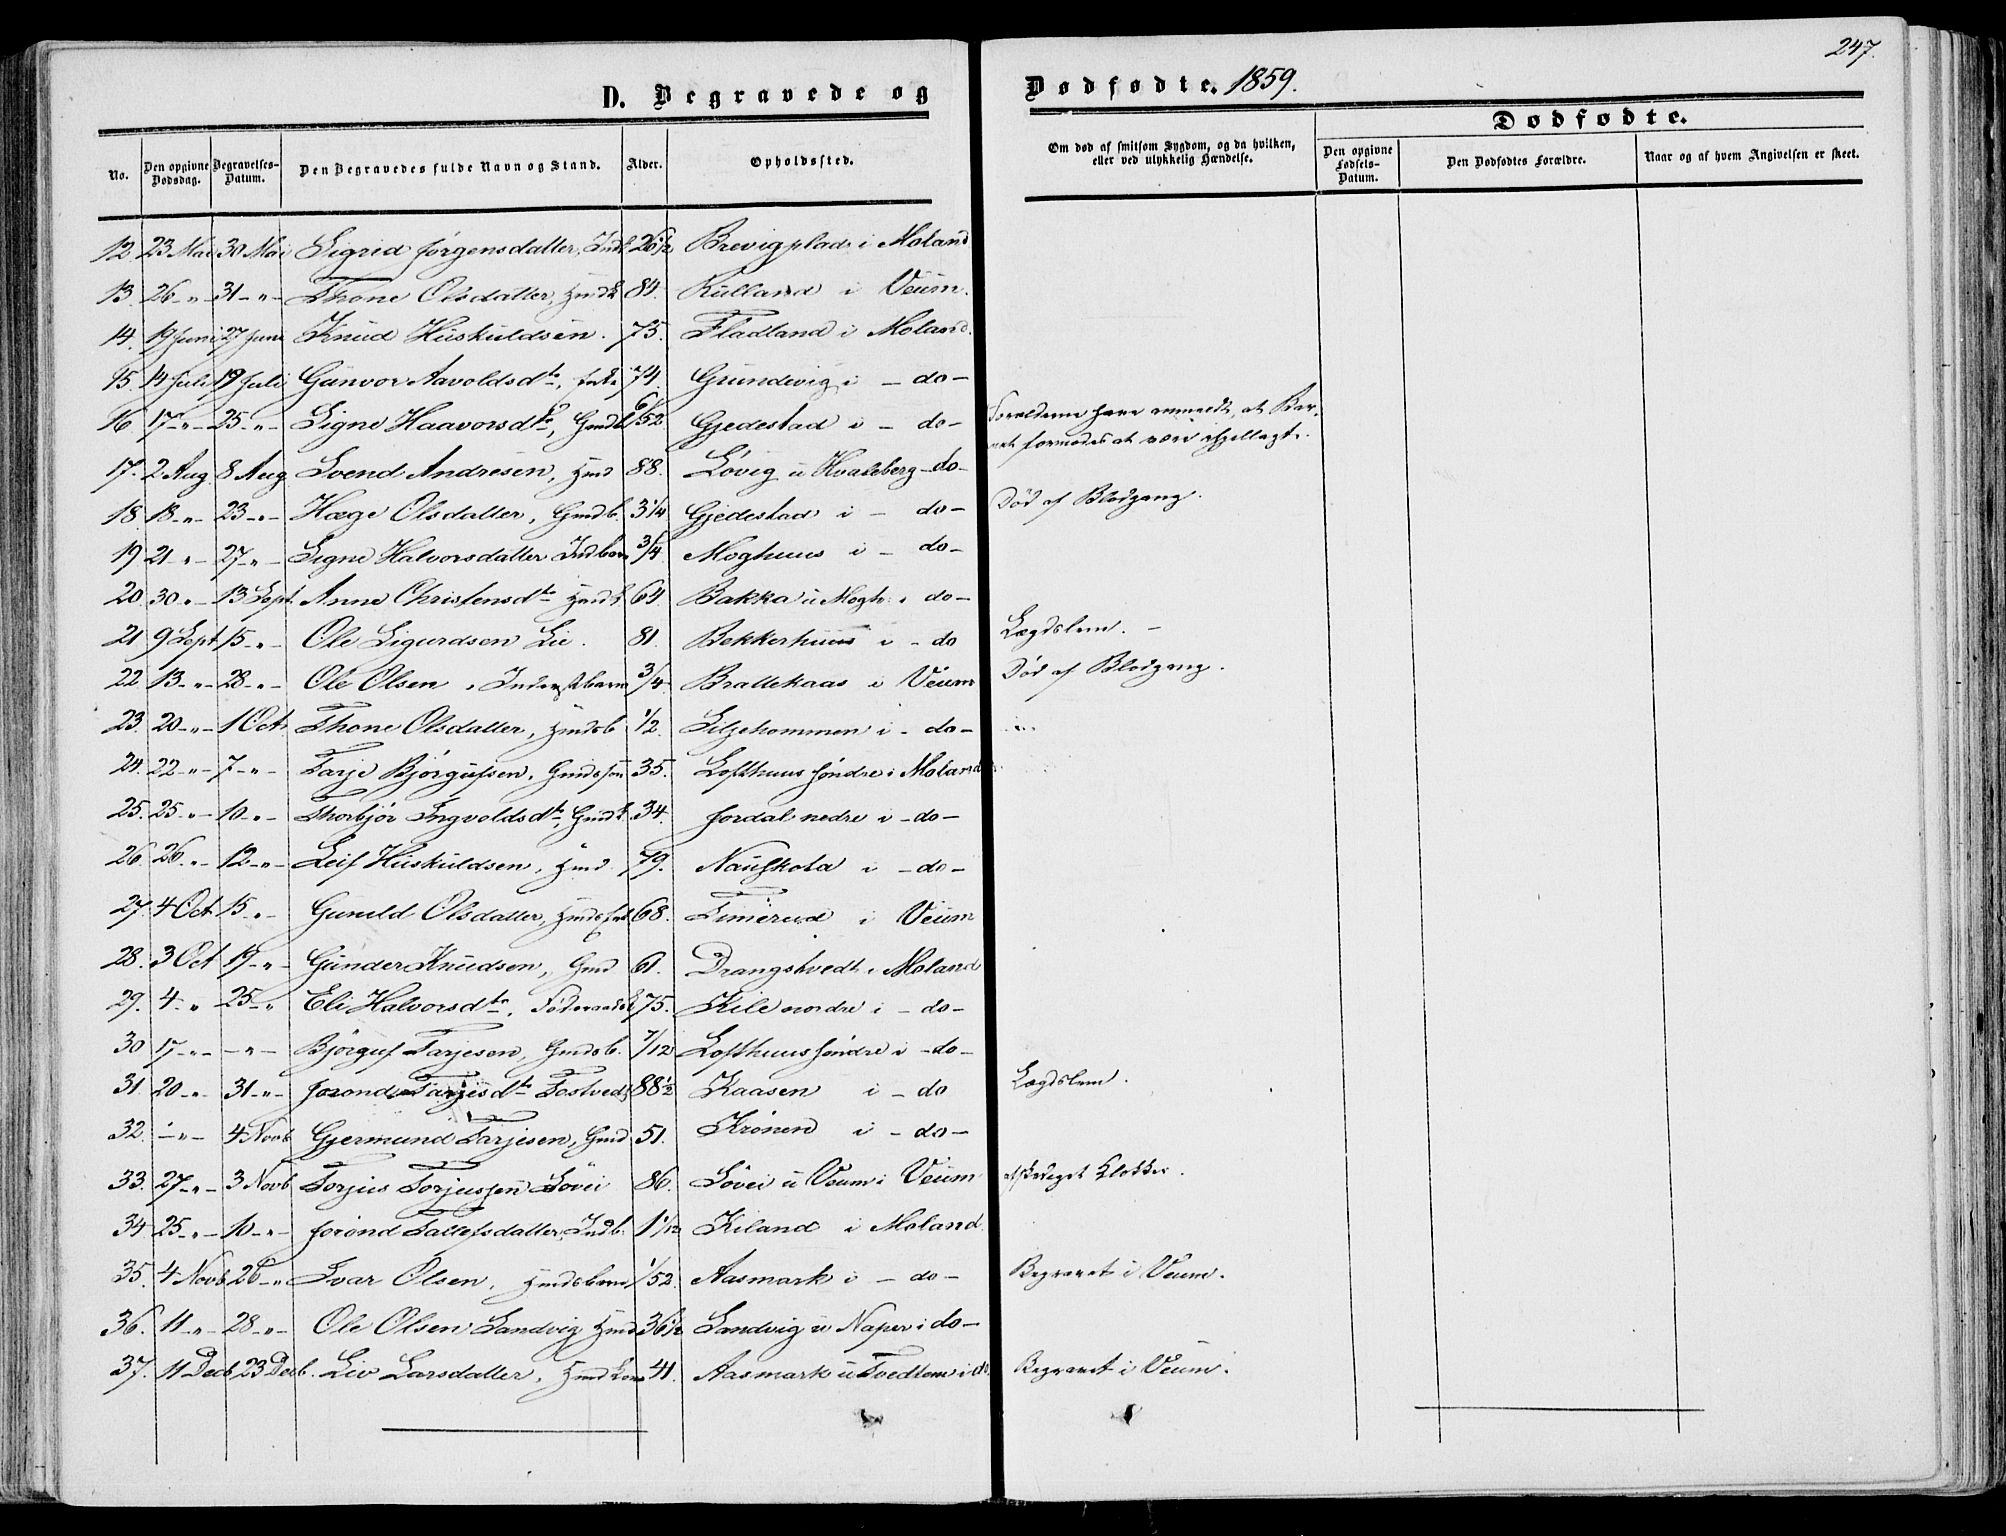 247.
D. Begravede og Dødfødte. 1859.
Dødfødte.
No. Den opgivne Dødsdag. Begravelses-Datum. Den Begravedes fulde Navn og Stand. Alder. Opholdssted. Om død af smitsom Sygdom, og da hvilken, eller ved ulykkelig Hændelse. Den opgivne Fødsels-Datum. Den Dødfødtes Forældre. Naar og af hvem Angivelsen er skeet.
12. 23 Mai 30 Mai Sigrid Jørgensdatter, 26 1/2 Brevigplads i Moland
13. 26 -"- 31 -"- Thone Olsdatter, 84. Rulland i Veum.
14. 19 Juni 27 Juni Knud Huskuldsen. 75. Fladland i Moland.
15. 14 Juli 19 Juli Gunvor Aavoldsdtr, 74. Grundevig i - do -
16 17 -"- 25 -"- Signe Haavorsdtr, 6/52 Gjedestad i - do - Forældrene have anmeldt, at Bar-
net formodes at være ihjellagt.
17. 2 Aug 8 Aug Svend Andresen, Hmd 88. Løvig u Hvaleberg - do -
18. 18 -"- 23 -"- Hæge Olsdatter, Gmdb. 3 1/4 Gjedestad i - do - Død af Blodgang.
19 21 -"- 27 -"- Signe Halvorsdatter Indbarn 3/4 Moghuus i - do -
20. 30 -"- 13 Sept. Anne Christensdtr 64 Bakka u Mogh. i do -
21 9 Sept 15 -"- Ole Sigurdsen Lie. 81. Bekkerhuus i - do Lægdslem. -
22 13 -"- 28 -"- Ole Olsen, Inderstbarn 3/4 Brattekaas i Veum Død af Blodgang.
23. 20 -"- 1 Oct. Thone Olsdatter, Hmdsb 1/2. Liljehommen i - do -
24. 22 -"- 7 -"- Tarje Bjørgufsen, Gmdssøn 35. Lofthuus søndre i Moland
25. 25 -"- 10 -"- Thorbjør Ingvoldsdtr, 34. Jordal nedre i - do -
26 26 -"- 12 -"- Leif Huskuldsen, Hmd 79. Nauskota i - do -
27. 4 Oct 15 -"- Gunild Olsdatter, 68. Timerud i Veum
28. 3 Oct 19 -"- Gunder Knudsen, Gmd 61. Drangstvedt i Moland
29. 4 -"- 25 -"- Eli Halvorsdtr, 75. Kile nordre i - do -
30 17 -"- -"- Bjørguf Tarjesen, Gmdsb. 7/12 Lofthuus søndre i - do -
31. 20 -"- 31 -"- Jorond Tarjesdtr Tostvedt 88 1/2 Kaasen i - do Lægdslem.
32. -"- 4 Novb Gjermund Tarjesen, Gmd 51. Krónen i - do -
33. 27 -"- 3 Novb Torjus Torjussen Løvei 86. Løvei u Veum i Veum afskediget Klokker.
34 25 -"- 10 -"- Jorond Tallefsdatter, Indb. 1 1/12 Kiland i Moland.
35. 4 Novb 26 -"- Ivar Olsen, Hmdsbarn 1/52. Aasmark i - do - Begravet i Veum.
36. 11 -"- 28 -"- Ole Olsen Sandvig Hmd 36 1/2 Sandvig u Naper i do -
37. 11 Decb 23 Decb. Liv Larsdatter, Hmd Kone 41. Aasmark u Tvedtene i do. Begravet i Veum.